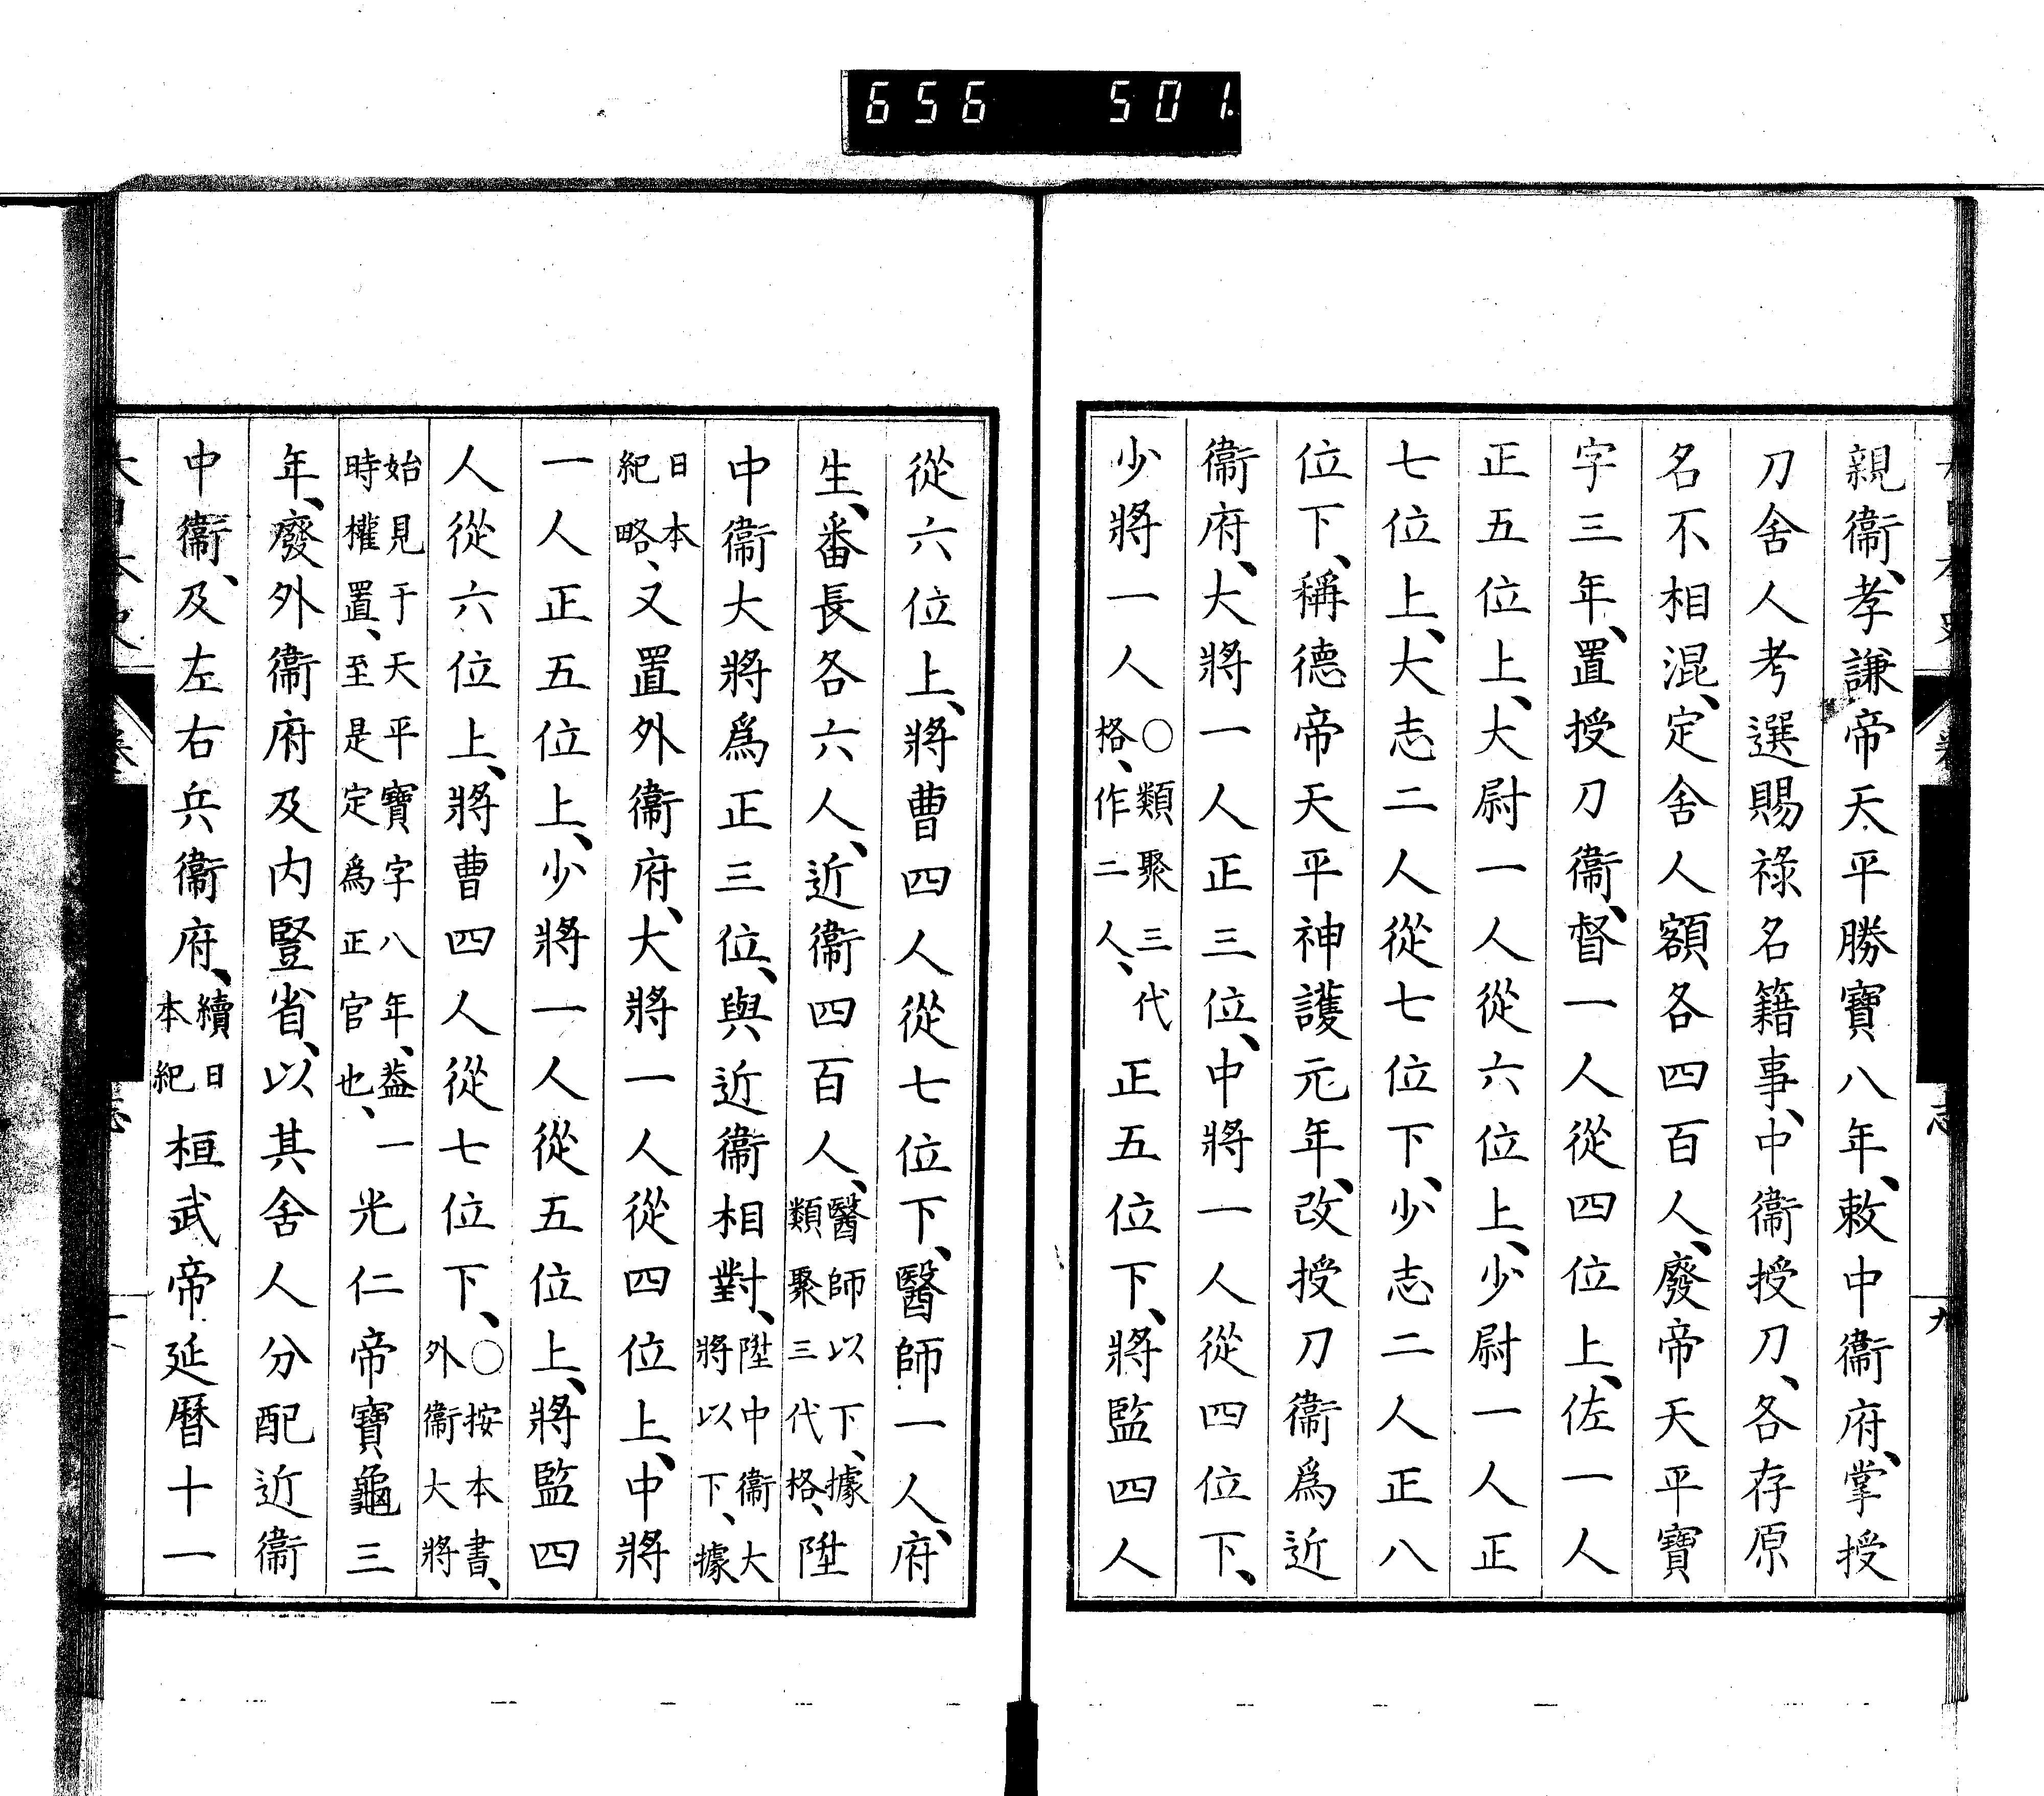 656 501
親衞、孝謙帝天平勝寶八年、敕中衞府、掌授
刀舍人考選賜祿名籍事、中衞授刀、各存原
名不相混、定舍人額各四百人、廢帝天平寶
字三年、置授刀衞、督一人從四位上、佐一人
正五位上、大尉一人從六位上、少尉一人正
七位上、大志二人從七位下、少志二人正八
位下、稱德帝天平神護元年、改授刀衞爲近
衞府、大將一人正三位、中將一人從四位下、
少將一人○類聚三代格、作二人、正五位下、將監四人
從六位上、將曹四人從七位下、醫師一人、府
生、番長各六人、近衞四百人、醫師以下、據類聚三代格、陞
中衞大將爲正三位、與近衞相對、陞中衞大將以下、據
日本紀略、又置外衞府、大將一人從四位上、中將
一人正五位上、少將一人從五位上、將監四
人從六位上、將曹四人從七位下、○按本書、外衞大將
始見于天平寶字八年、蓋一時權置、至是定爲正官也、光仁帝寶龜三
年、廢外衞府及内豎省、以其舍人分配近衞
中衞、及左右兵衞府、續日本紀桓武帝延曆十一